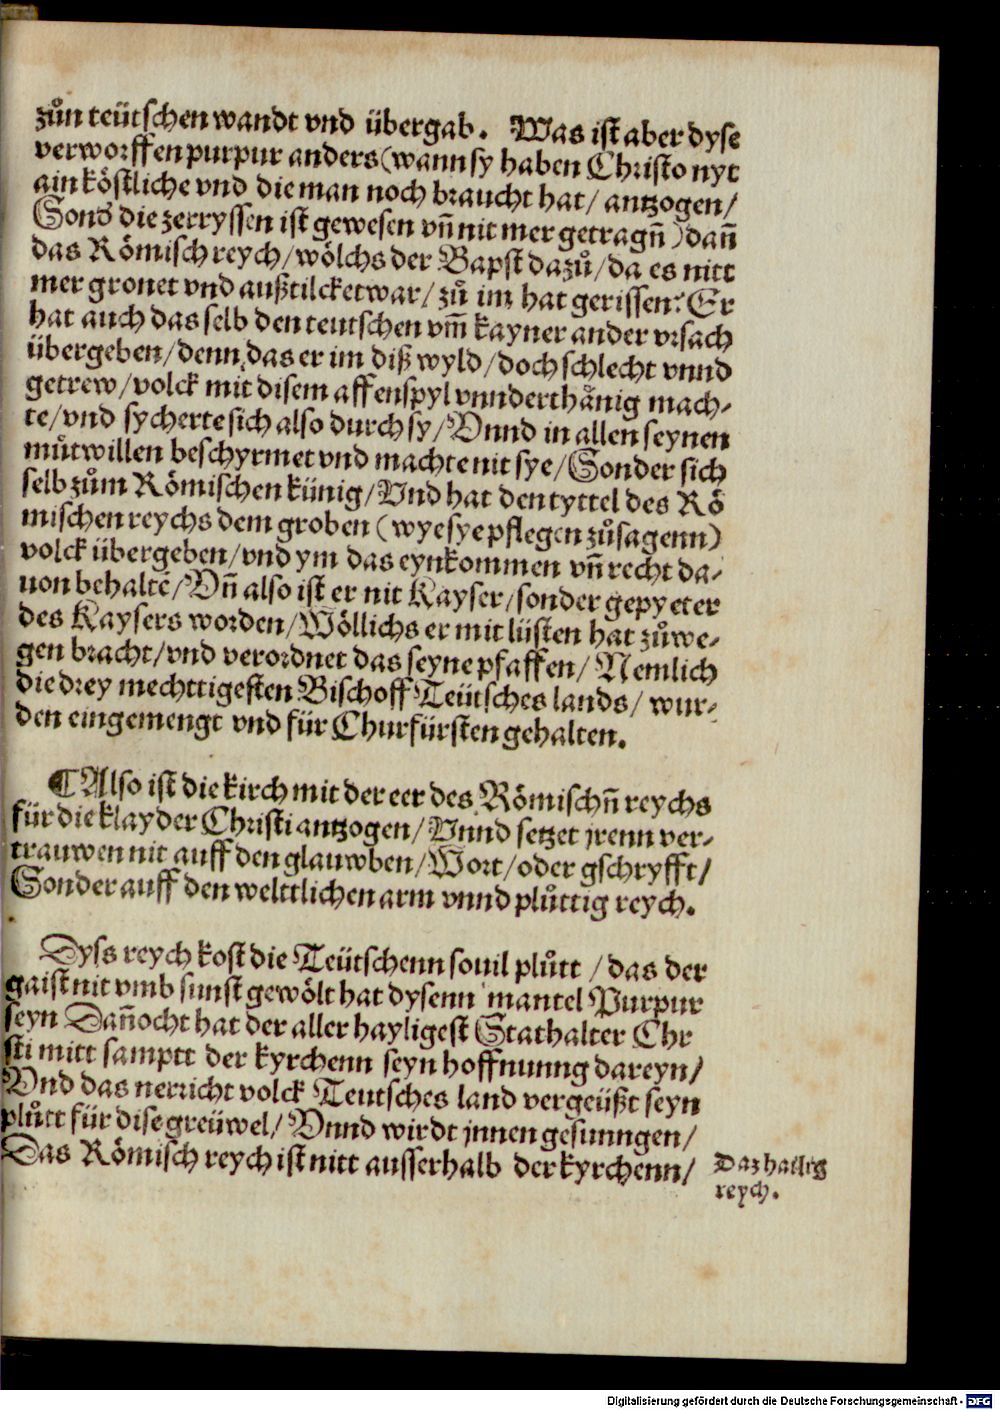 zůn teütschen wandt vnd übergab. Was ist aber dyse
verworffen purpur anders (wann sy haben Christo nyt
ain köstliche vnd die man noch braucht hat/ antzogen/
Sond's die zerryssen ist gewesen vñ nit mer getragñ) dañ
das Römisch reych/ wölchs der Bapst dazů/ da es nitt
mer gronet vnd außtilcket war/ zů im hat gerissen? Er
hat auch das selb den teutschen vm̃ kayner ander vrsach
übergeben/ denn das er im diß wyld/ doch schlecht vnnd
getrew/ volck mit disem affenspyl vnnderthånig mach-
te/ vnd sycherte sich also durch sy/ Vnnd in allen seynen
můtwillen beschyrmet vnd machte nit sye/ Sonder sich
selb zům Römischen künig/ Vnd hat den tyttel des Rö
mischen reychs dem groben (wye sye pflegen zůsagenn)
volck übergeben/ vnd ym das eynkommen vñ recht da-
uon behaltẽ/ Vñ also ist er nit Kayser/ sonder gepyeter
des Kaysers worden/ Wöllichs er mit lüsten hat zůwe-
gen bracht/ vnd verordnet das seyne pfaffen/ Nemlich
die drey mechttigesten Bischoff Teütsches lands/ wur-
den eingemengt vnd für Churfürsten gehalten.
¶ Also ist die kirch mit der eer des Römischñ reychs
für die klayder Christi antzogen/ Vnnd setzet jrenn ver-
trauwen nit auff den glauwben/ Wort/ oder gschryfft/
Sonder auff den welttlichen arm vnnd plůttig reych.
Dyss reych kost die Teütschenn souil plůtt / das der
gaist nit vmb sunst gewölt hat dysenn mantel Purpur
seyn Dañocht hat der aller hayligest Stathalter Chr
sti mitt samptt der kyrchenn seyn hoffnunng dareyn/
Vnd das nerricht volck Teutsches land vergeüßt seyn
plůtt für dise greüwel/ Vnnd wirdt jnnen gesunngen/
Das Römisch reych ist nitt ausserhalb der kyrchenn/
Daz hailig
reych.
Digitalisierung gefördert durch die Deutsche Forschungsgemeinschaft - DFG